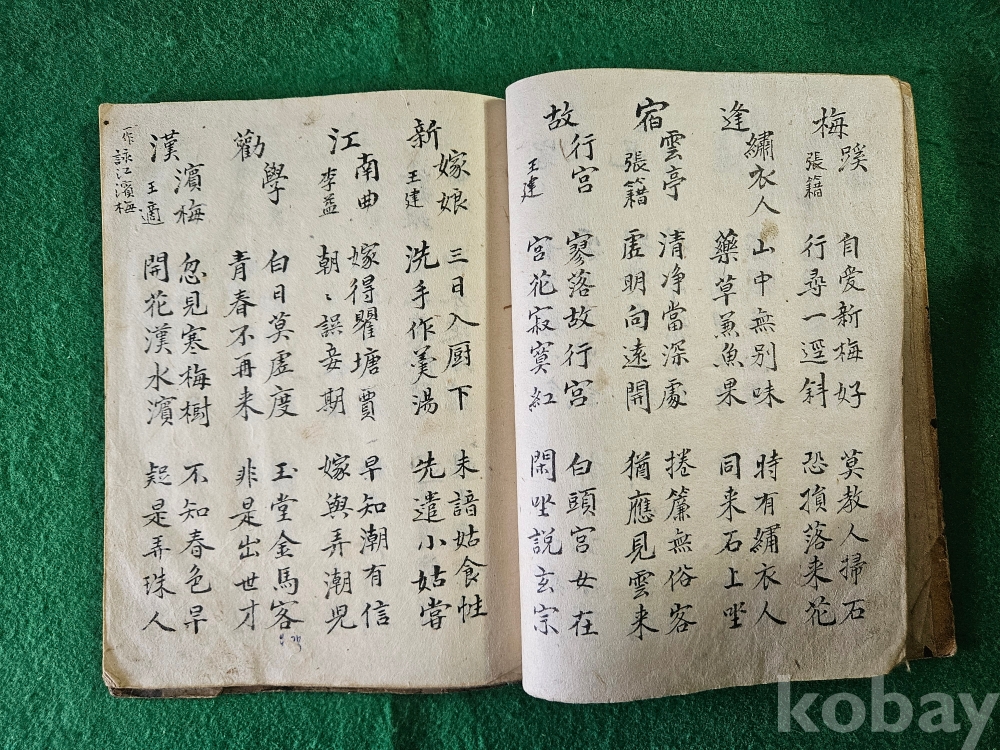 梅蹊
張籍
自爱新梅好 莫教人掃石
行尋一逕斜 恐損落来花
逢繡衣人
山中無別味 時有繡衣人
藥草兼魚果 同来石上坐
宿雲亭
張籍
清净當深處 捲簾無俗客
虛明向遠開 猶應見雲来
故行宮
王建
寥落故行宮 白頭宮女在
宮花寂寞紅 閑坐說玄宗
新嫁娘
王建
三日入厨下 未諳姑食性
洗手作羹湯 先遣小姑嘗
江南曲
李益
嫁得瞿塘賈 早知潮有信
朝〻誤妾期 嫁與弄潮児
勸學
白日莫虛度 玉堂金馬客
青春不再来 非是出世才
漢濱梅
王適
忽見寒梅樹 不知春色早
開花漢水濱 疑是弄珠人
一作詠江濱梅
kobay